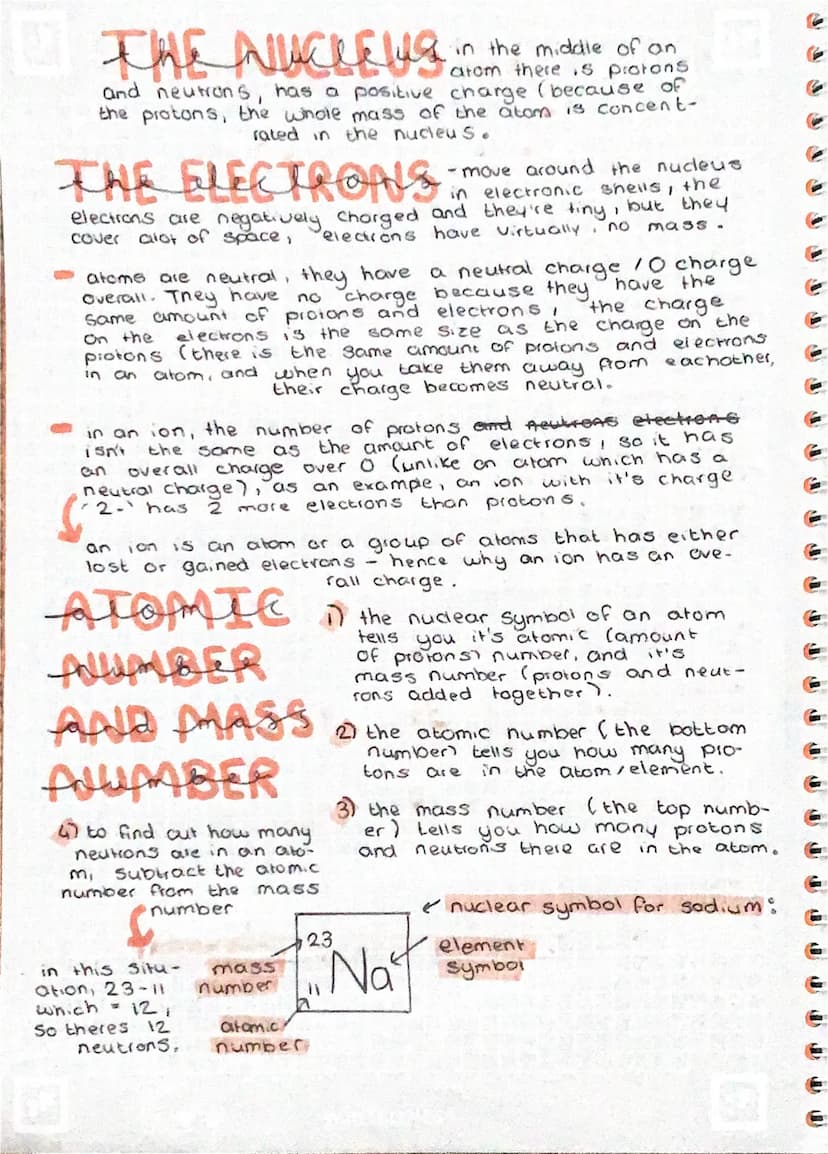 THE NUCLEUS
the nucleus
in the middle of an
atom there is protons
and neutrons, has a positive charge (because of
the protons, the whole mass of the atom is concent-
rated in the nucleus.
THE ELECTRONS
the electrons
- move around the nucleus
in electronic shells, the
electrons are negatively charged and they're tiny, but they
cover alot of space, electrons have virtually no mass.
- atoms are neutral, they have a neutral charge / 0 charge
overall. They have no charge because they have the
same amount of protons and electrons, the charge
on the electrons is the same size as the charge on the
protons (there is the same amount of protons and electrons
in an atom, and when you take them away from eachother,
their charge becomes neutral.
- in an ion, the number of protons and neutrons electrons
isn't the same as the amount of electrons, so it has
an overall charge over 0 (unlike an atom which has a
neutral charge), as an example, an ion with it's charge
'2-' has 2 more electrons than protons.
an ion is an atom or a group of atoms that has either
lost or gained electrons - hence why an ion has an ove-
rall charge.
ATOMIC
atomic
NUMBER
number
AND MASS
and mass
NUMBER
number
1) the nuclear symbol of an atom
tells you it's atomic (amount
of protons) number, and it's
mass number (protons and neut-
rons added together).
2) the atomic number (the bottom
number) tells you how many pro-
tons are in the atom/element.
3) the mass number (the top numb-
er) tells you how many protons
and neutrons there are in the atom.
4) to find out how many
neutrons are in an ato-
m, subtract the atomic
number from the mass
number
in this situ-
ation, 23-11
which = 12,
so theres 12
neutrons.
nuclear symbol for sodium:
23
11 Na
mass
number
atomic
number
element
symbol